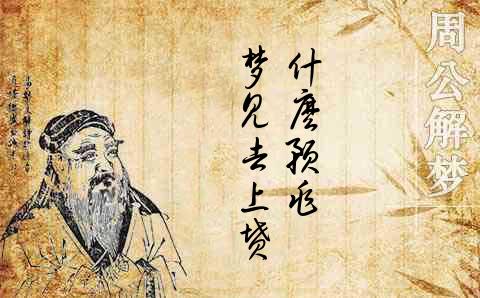 周公解梦
什麼预兆
梦见去上坟